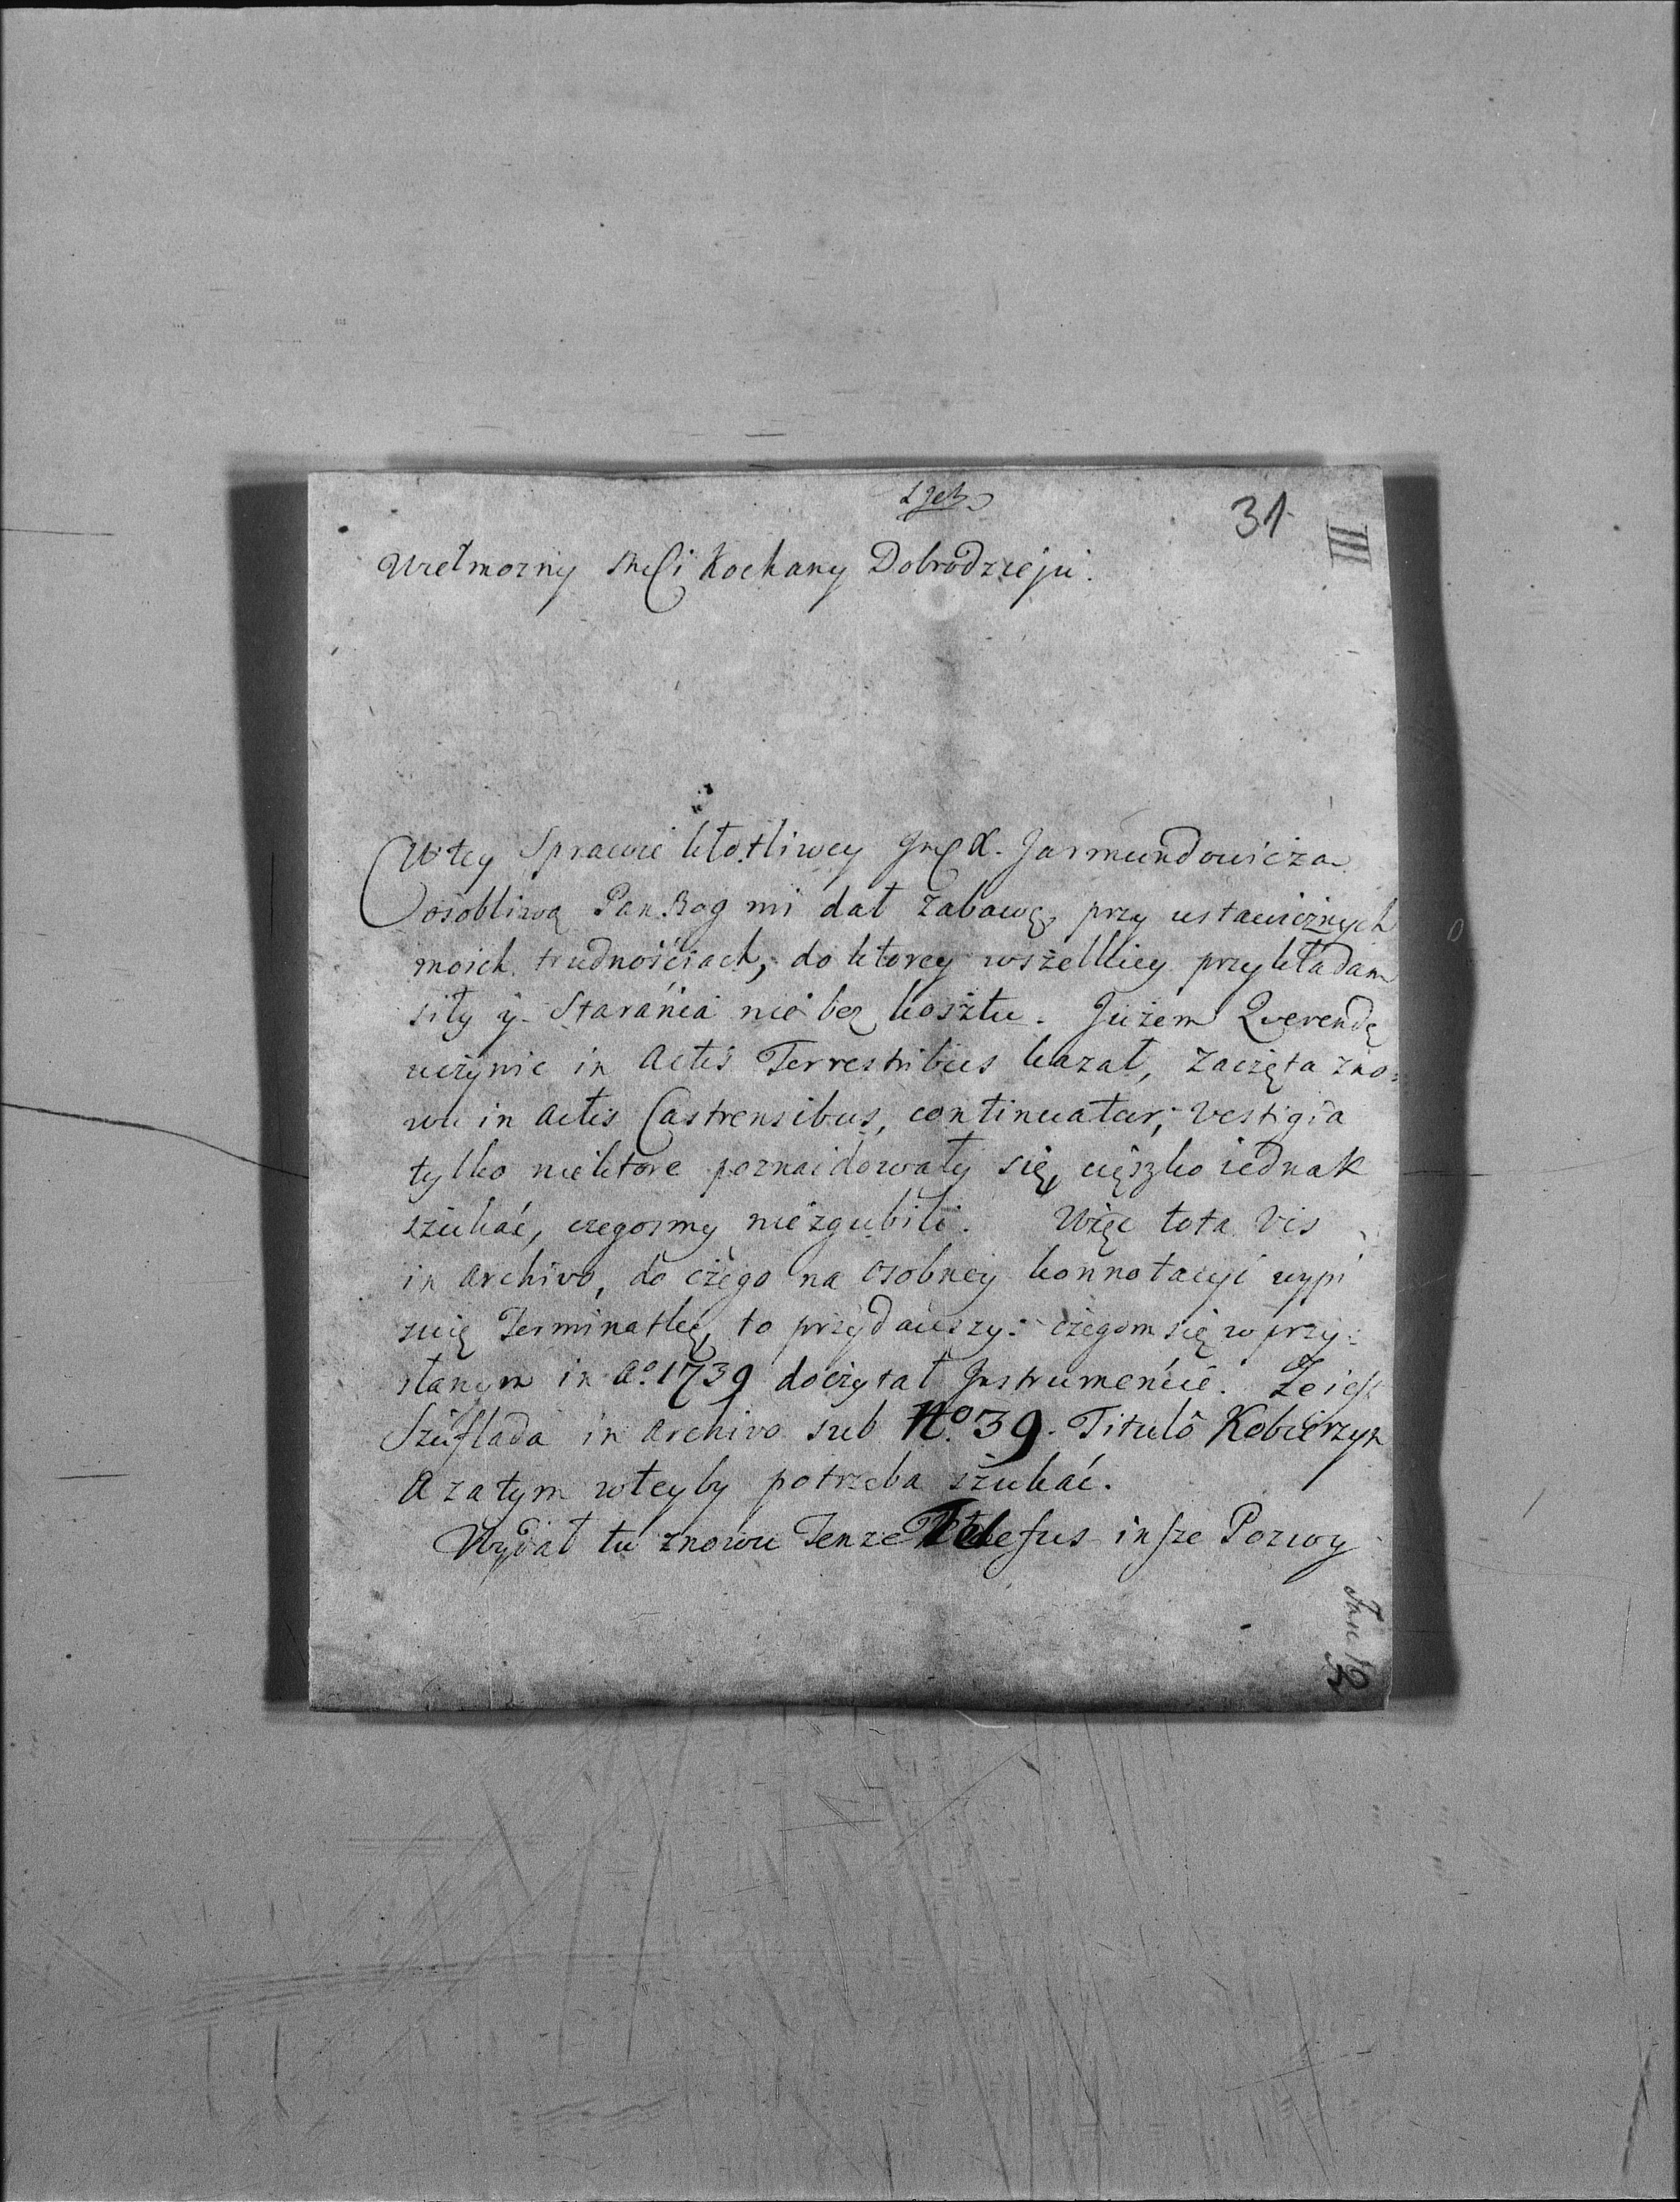 31
III
Wielmozny Mſci Kochany Dobrodzieju.
W tey Sprawie kłotliwey Jmſ X. Jarmundowicza
osobliwą Pan Bog mi dał zabawę, przy ustawicznych
moich trudnościach, do ktorey wszelkiey przykładam
siły y Starania nie bez kosztu. Juzem Qverendę
uczynic in Actis Terrestribus kazał, zaczęta zno=
wu in Actis Castrensibus, continuatur; Vestigia
tylko niektore poznaidowały się, cięszko iednak
szukać, czegosmy niezgubili. Więc tota Vis
in Archivo, do czego na osobney konnotacyi wypi
suię Terminatkę, to przydawszy: czegom się w przy=
słanym in Aº 1739 doczytał Jnstrumencie. Ze iest
Szuflada in Archivo sub Nº 39. Titulô Kobierzyn
A zatym w teyby potrzeba szukać.
Wydał tu znowu Tenze Telefus insze Pozwy